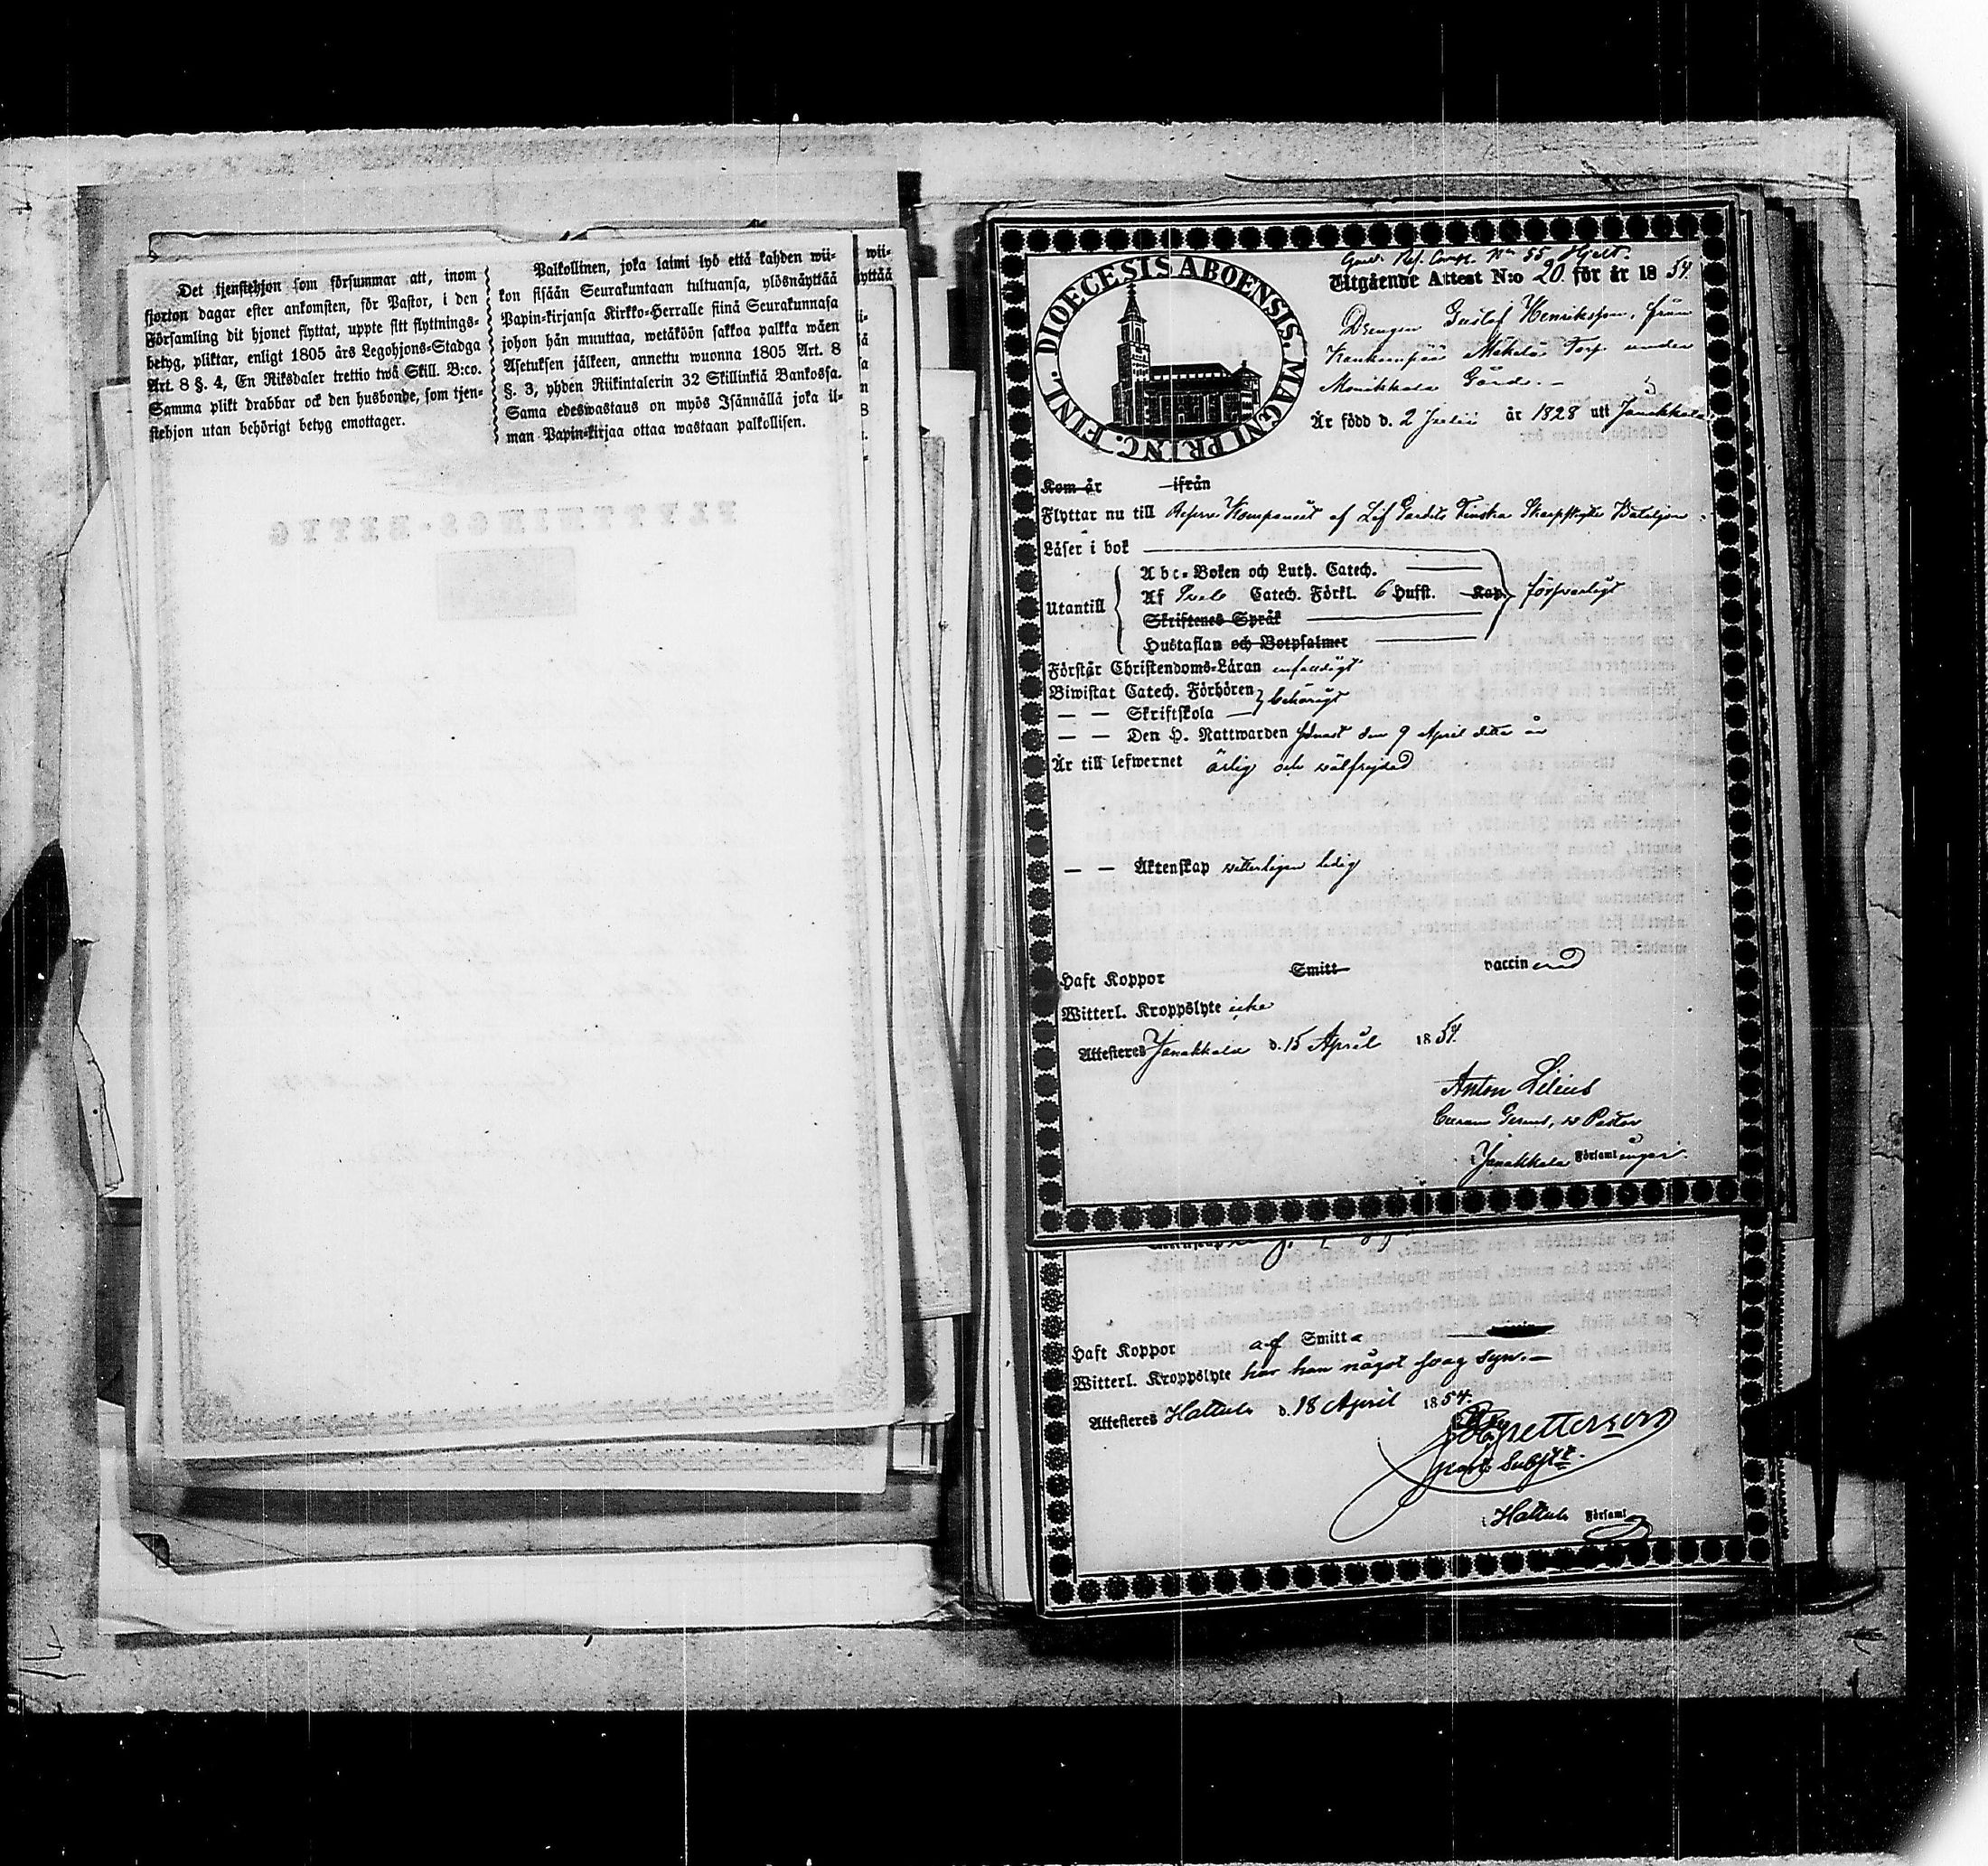 Det tjenstehjon som försummar att, inom
fjorton dagar efter ankomsten, för Pastor, i den
Församling dit hjonet flyttat, uppte sitt flyttnings-
betyg, pliktar, enligt 1805 års Legohjons-Stadga
Art. 8 §. 4, En Riksdaler trettio twå Skill. B:co.
Samma plikt drabbar ock den husbonde, som tjen-
stehjon utan behörigt betyg emottager.
Palkollinen, joka laimi lyö että kahden wii-
kon sisään Seurakuntaan tultuansa, ylösnäyttää
Papin-kirjansa Kirkko-Herralle siinä Seurakunnasa
johon hän muuttaa, wetäköön sakkoa palkka wäen
Asetuksen jälkeen, annettu wuonna 1805 Art. 8
§. 3, yhden Riikintalerin 32 Skillinkiä Bankossa.
Sama edeswastaus on myös Isännällä joka il-
man Papin-kirjaa ottaa wastaan palkollisen.
wii-
yttää
FLYTTNINGS-BETYG
DIOECESIS ABOENSIS. MAGNI PRINC. FINL.
Gard. Res. Comp. No 55 Hjelt.
Utgående Attest N:o 20 för år 1854
Drengen Gustaf Henriksson, från
Mäkelä Torp under
Monikkala Gård. -
Är född d. 2 Julii år 1828 uti Janakkala
Kom år ifrån
Flyttar nu till Reserv Kompaniet af Lif Gardets Finska Skarpskytte Bataljon
Läser i bok
Abc-Boken och Luth. Catech.
Utantill Af Svebe Catech. Förkl. 6 Hufst. Kap. försvarligt
Skriftenes Språk
Hustaflan och Botpsalmer
Förstår Christendoms-Läran enfaldigt
Biwistat Catech. Förhören behörigt
— — Skriftskola —
— — Den H. Nattwarden senast den 9 April detta år
Är till lefwernet ärlig och wälfrejdad
— — Äktenskap vetterligen ledig
Haft Koppor Smitt vaccinerad
Witterl. Kroppslyte icke
Attesteres Janakkala d. 15 April 1854.
Anton Lilius
Curam Gerens, Pastor
i Janakkala Församlingar.
Haft Koppor af Smitt
Witterl. Kroppslyte har han något svag syn. —
Attesteres Hattula d. 18 April 1854.
Petterson
Past: Subst:
i Hattula Församl